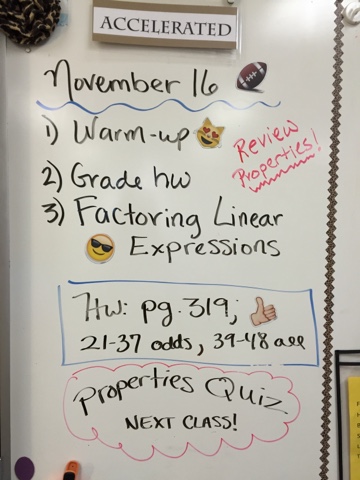 ACCELERATED
November 16
1) Warm-up
Review
Properties!
2) Grade hw
3) Factoring Linear
Expressions
Hw: pg. 319,
21-37 odds, 39-48 all
Properties Quiz
NEXT CLASS!